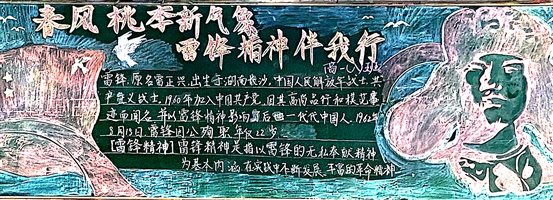 春风桃李新气象
雷锋精神伴我行
高一(5)班
雷锋，原名雷正兴，出生于湖南长沙，中国人民解放军战士，共
产主义战士，1960年加入中国共产党，因其高尚品行和模范事
迹而闻名，并以雷锋精神影响着后世一代代中国人，1962年
8月15日雷锋因公殉职，年仅22岁。
【雷锋精神】雷锋精神是指以雷锋的无私奉献精神
为基本内涵，在实践中不断发展、丰富的革命精神